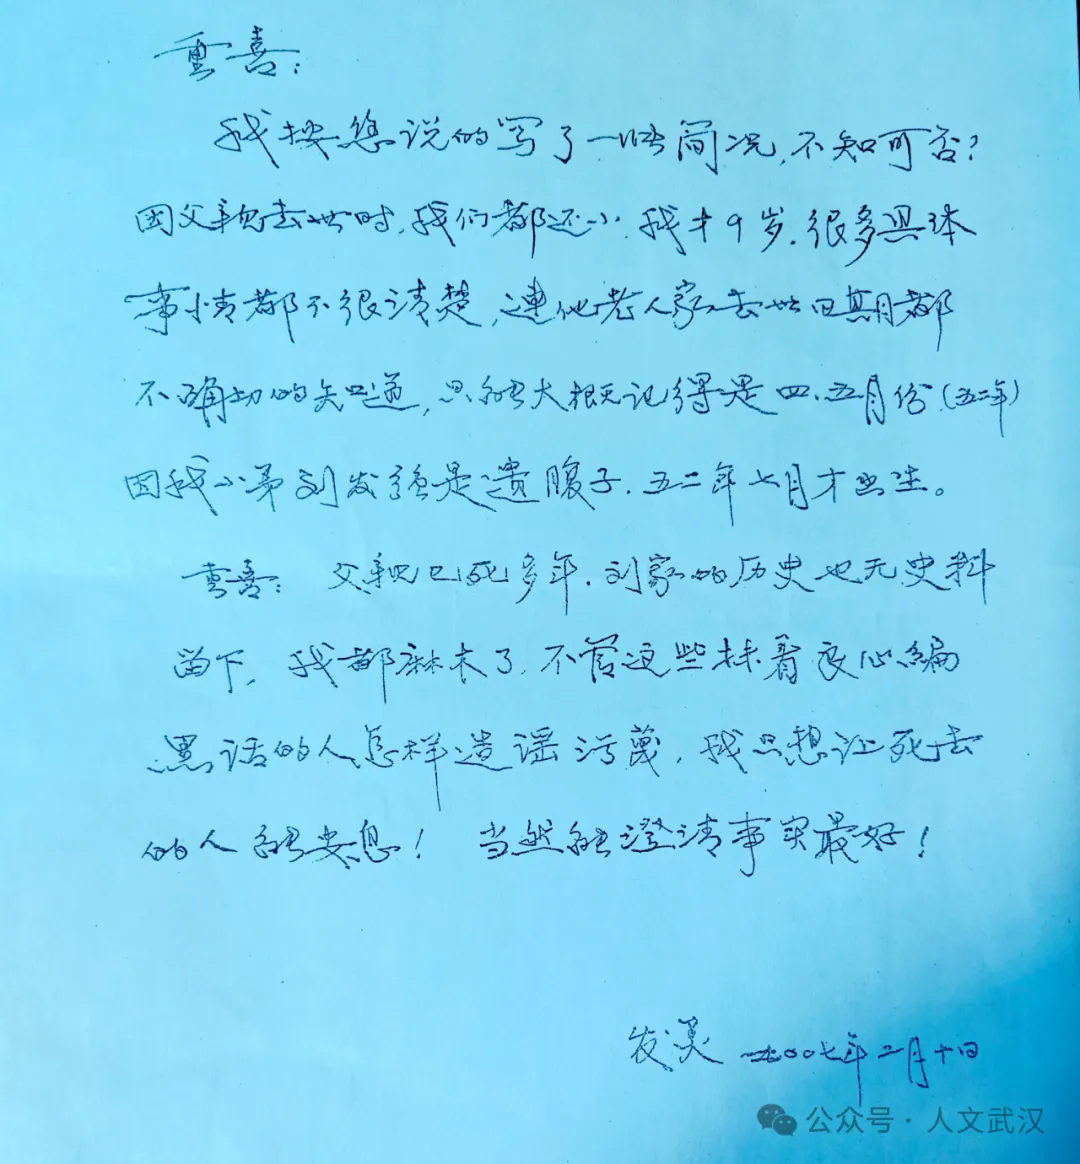 重喜：
我按您说的写了一些简况，不知可否？
因父亲去世时，我们都还小，我才9岁，很多具体
事情都不很清楚，连他老人家去世日期都
不确切的知道，只能大概记得是四、五月份（五二年）
因我小弟刘发强是遗腹子，五二年七月才出生。
重喜：父亲已死多年，刘家的历史也无史料
留下，我都麻木了，不管这些抹着良心编
黑话的人怎样造谣污蔑，我只想让死去
的人能安息！当然能澄清事实最好！
发 二00七年二月十日
公众号·人文武汉